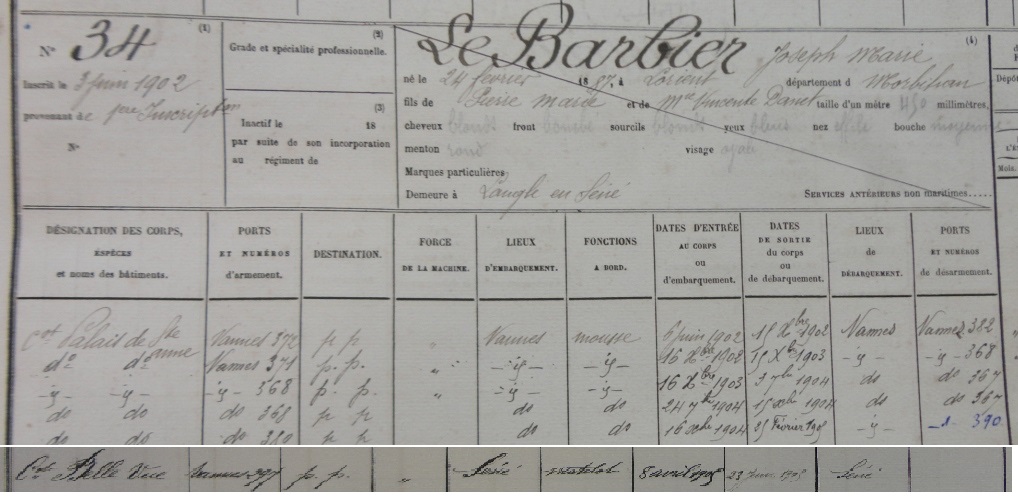 (1) (2) (4)
N° 34
Grade et spécialité professionnelle.
Le Barbier Joseph Marie
Inscrit le 3 juin 1902
né le 24 février 1887, à Lorient département d Morbihan
provenant de 1ère Inscription
(3)
fils de Pierre Marie et de Mie Vincente Danet taille d'un mètre 450 millimètres,
N°
Inactif le 18
cheveux blonds front bombé sourcils blonds yeux bleus nez bouche moyenne
par suite de son incorporation
au régiment de
menton rond visage ovale
Marques particulières
Demeure à Langle en Séné
SERVICES ANTÉRIEURS non maritimes.....
DÉSIGNATION DES CORPS, ESPÈCES et noms des bâtiments.
PORTS ET NUMÉROS d'armement.
DESTINATION.
FORCE DE LA MACHINE.
LIEUX D'EMBARQUEMENT.
FONCTIONS A BORD.
DATES D'ENTRÉE AU CORPS ou d'embarquement.
DATES DE SORTIE du corps ou de débarquement.
LIEUX de DÉBARQUEMENT.
PORTS ET NUMÉROS de désarmement.
Cot Palais de Ste Anne Vannes 372 p p " Vannes mousse 6 juin 1902 15 Xbre 1902 Vannes Vannes 382
do do Vannes 371 p. p. " -ij- -ij- 16 Xbre 1902 15 Xbre 1903 -ij- -ij- 368
-ij- -ij- -ij- 368 p. p. " -ij- -ij- 16 Xbre 1903 7bre 1904 do do 367
do do do 368 p p do do 24 7bre 1904 15 xbre 1904 do do 367
do do do 380 p p do do 16 xbre 1904 25 Février 1905 -ij- -d- 390
Cot Belle Vice Vannes 397 p. p. " Séné matelot 8 avril 1905 23 Juin 1905 Séné